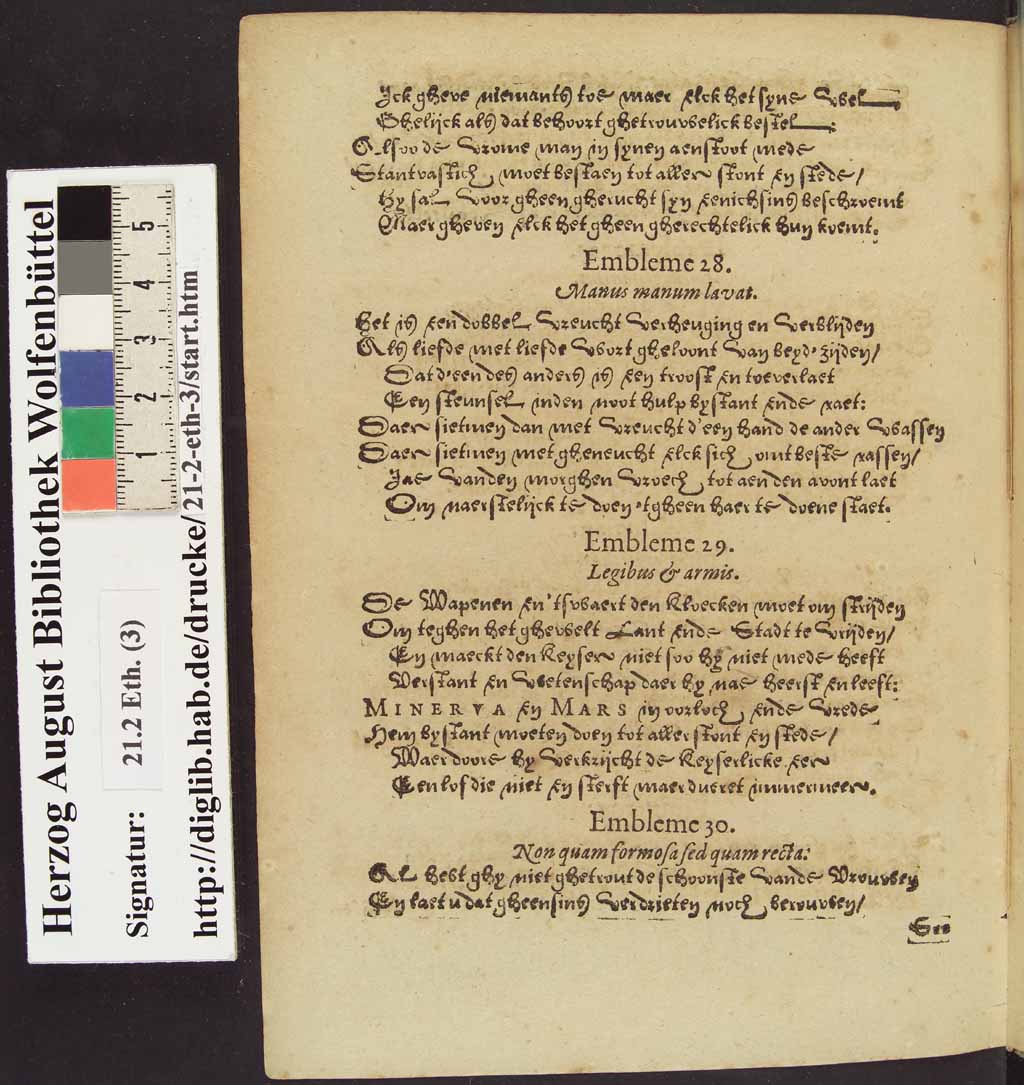 Herzog August Bibliothek Wolfenbüttel
Signatur: 21.2 Eth. (3)
http://diglib.hab.de/drucke/21-2-eth-3/start.htm
1 2 3 4 5
Ick gheve niemants toe maer elck het syne wel
Ghelijck als dat behoort ghetrouwelick bestel:
Alsoo de vrome man in synen aenstoot mede
Stantvastich moet bestaen tot aller stont en stede/
Hy sal voor gheen gherucht syn eenichsins beschroemt
Maer gheven elck het gheen gherechtelick hun koemt.
Embleme 28.
Manus manum lavat.
Het is een dobbel vreucht verheuging en verblijden
Als liefde met liefde wort gheloont van beyd' zijden/
Dat d'een des anders is een troost en toeverlaet
Een steunsel inden noot hulp bystant ende raet:
Daer sietmen dan met vreucht d'een hand de ander wassen
Daer sietmen met gheneucht elck sich omt beste rassen/
Jae vanden morghen vroech tot aen den avont laet
Om naerstelijck te doen 'tgheen haer te doene staet.
Embleme 29.
Legibus & armis.
De Wapenen en 'tswaert den kloecken moet om strijden
Om teghen het ghewelt Lant ende Stadt te vrijden/
En maeckt den Keyser niet soo hy niet mede heeft
Verstant en wetenschap daer hy nae heerst en leeft:
MINERVA en MARS in oorloch ende vrede
Hem bystant moeten doen tot aller stont en stede/
Waer doore hy verkrijcht de Keyserlicke eer
Een lof die niet en sterft maer dueret immermeer.
Embleme 30.
Non quam formosa sed quam recta:
Al hebt ghy niet ghetrout de schoonste vande Vrouwen
En laet u dat gheensins verdrieten noch berouwen/